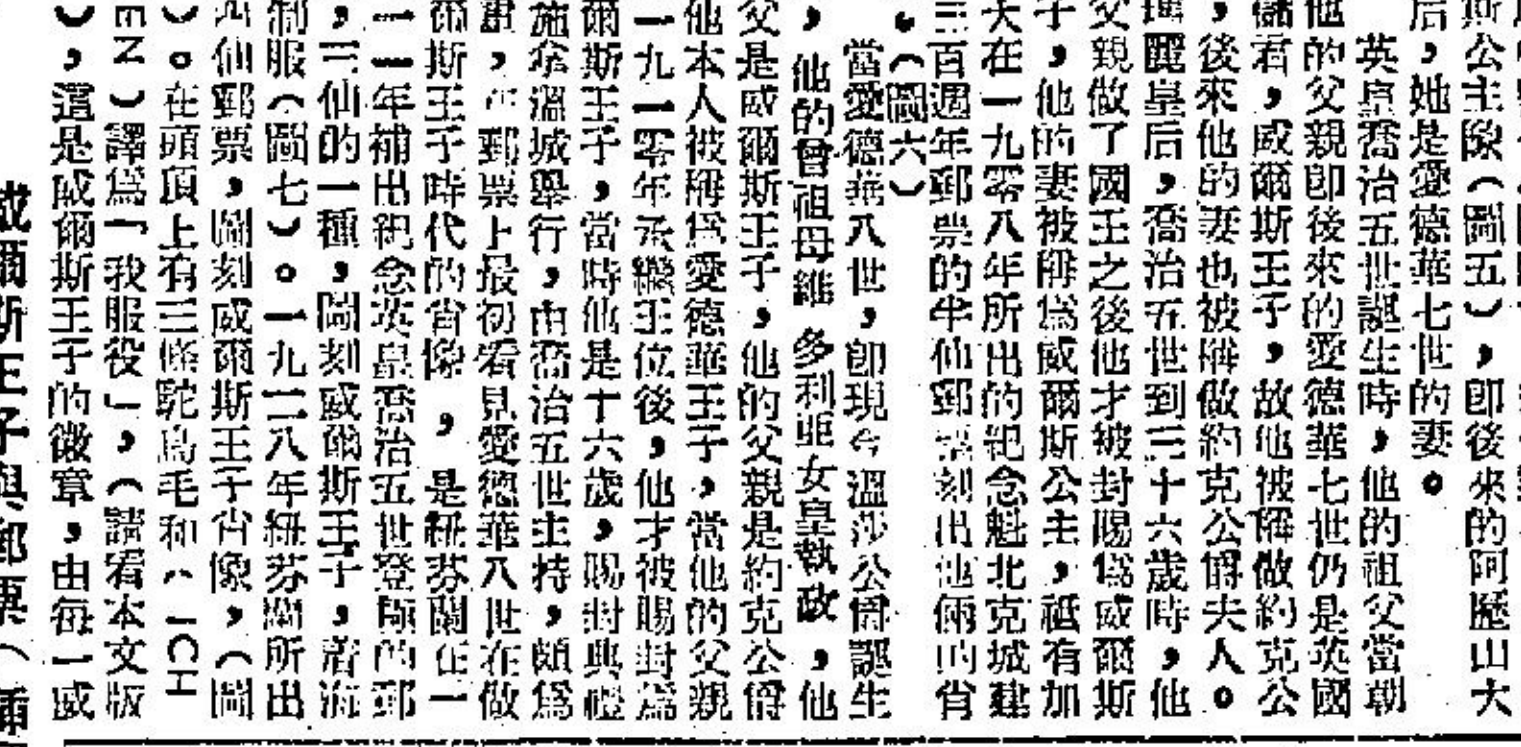 斯公主陛(圖五),卽後來的阿歷山大
后,她是愛德華七世的妻。
英皇喬治五世誕生時,他的祖父當朝
他的父親卽後來的愛德華七世仍是英國
儲君,威爾斯王子,故他被稱做約克公
,後來他的妻也被稱做約克公爵夫人。
瑪麗皇后,喬治五世到三十六歲時,他
父親做了國王之後他才被封賜爲威爾斯
子,他的妻被稱爲威爾斯公主,祗有加
大在一九零八年所出的紀念魁北克城建
三百週年郵票的半仙郵票刻出他倆的肖
。(圖六)
當愛德華八世,卽現今溫莎公爵誕生
,他的曾祖母維多利亜女皇執政,他
父是威爾斯王子,他的父親是約克公爵
他本人被稱爲愛德華王子,當他的父親
一九一零年承繼王位後,他才被賜封爲
爾斯王子,當時他是十六歲,賜封典禮
施拿溫城舉行,由喬治五世主持,頗爲
重,在郵票上最初看見愛德華八世在做
爾斯王子時代的肖像,是紐芬蘭在一
一一年補出紀念英皇喬治五世登極的郵
,三仙的一種,圖刻威爾斯王子,着海
制服(圖七)。一九二八年紐芬蘭所出
四仙郵票,圖刻威爾斯王子肖像,(圖
)。在頭頂上有三條駝鳥毛和(ICH
EN)譯爲「我服役」,(請看本文版
),這是威爾斯王子的徽章,由每一威
威爾斯王子與郵票(